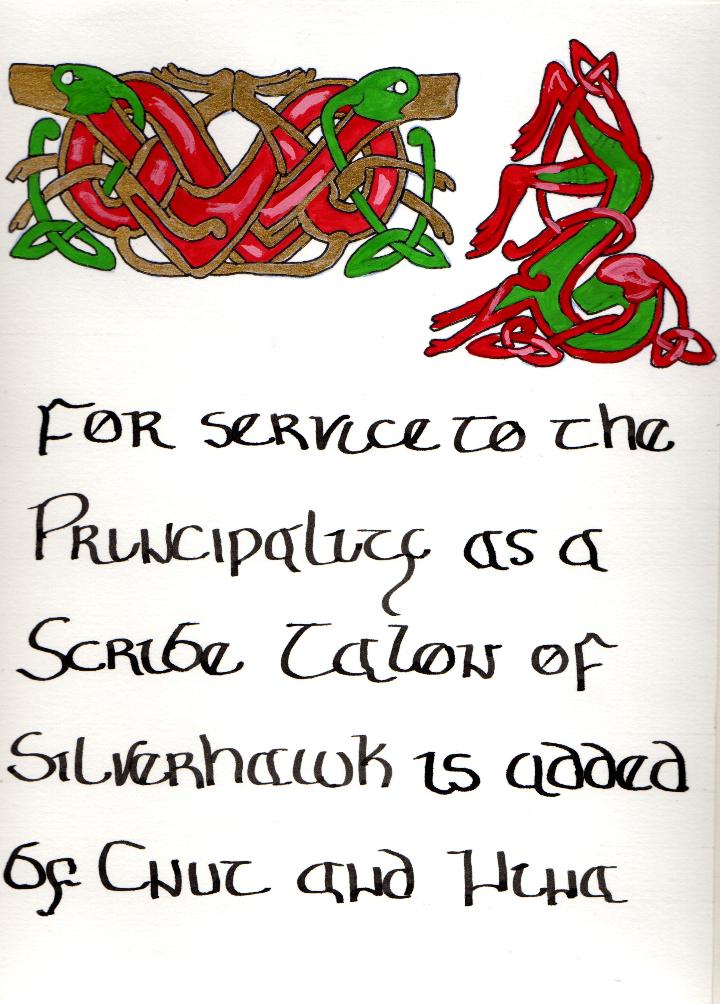 For service to the
Principality as a
Scribe Talon of
Silverhawk is added
by Cnut and Hina